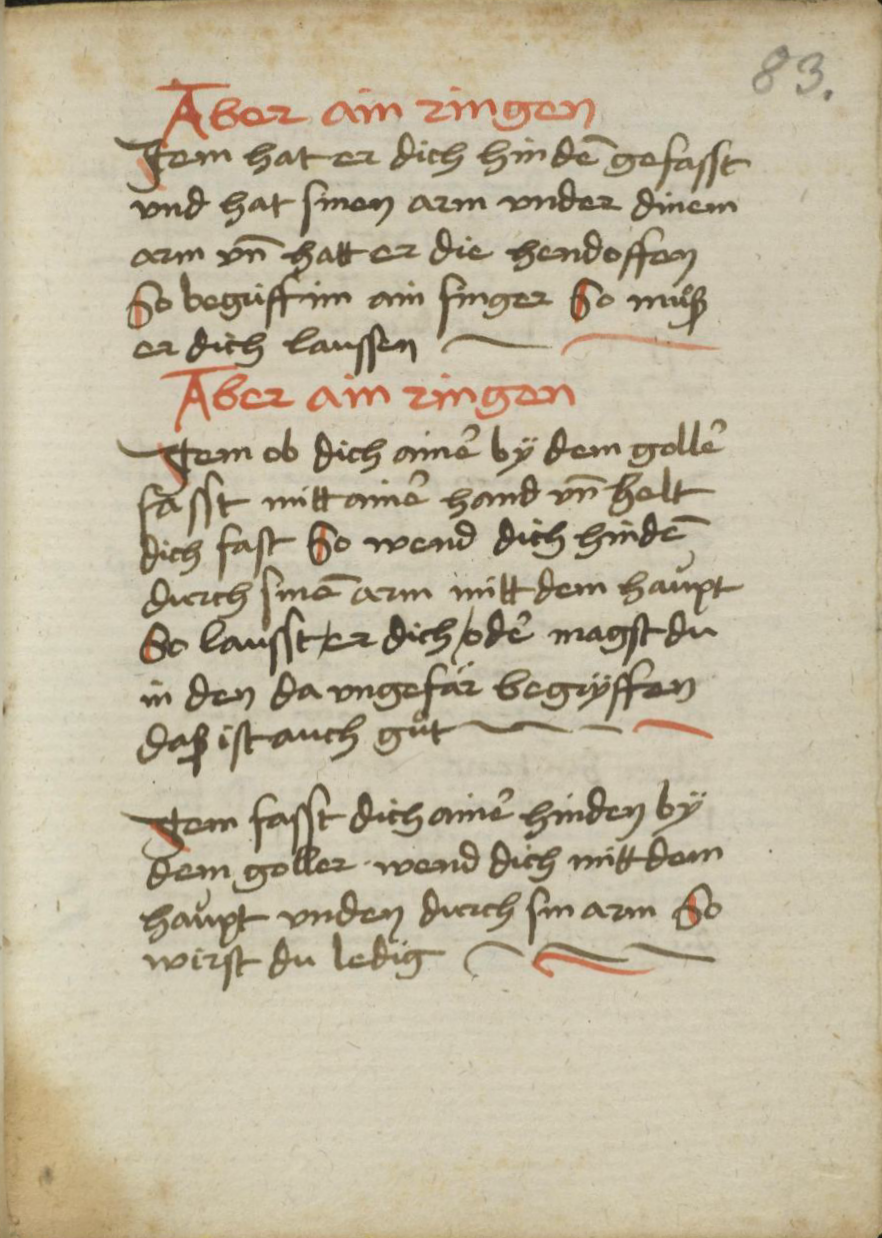 83.
Aber ain ringen
Item hat er dich hindē gefasst
vnd hat sinen arm vnder dinem
arm vn̄ hatt er die hend offen
So begriff im ain finger So muͦß
er dich laussen
Aber ain ringen
Item ob dich aineʼ by̎ dem golleʼ
fasst mitt aineʼ hand vn̄ helt
dich fast So wend dich hindē
durch sinē arm mitt dem haupt
So lausst er dich / odeʼ magst du
in den da vngefär begry̎ffen
daß ist auch guͦt
Item fasst dich aineʼ hinden by̎
dem goller wend dich mitt dem
haupt vnden durch sin arm So
wirst du ledig